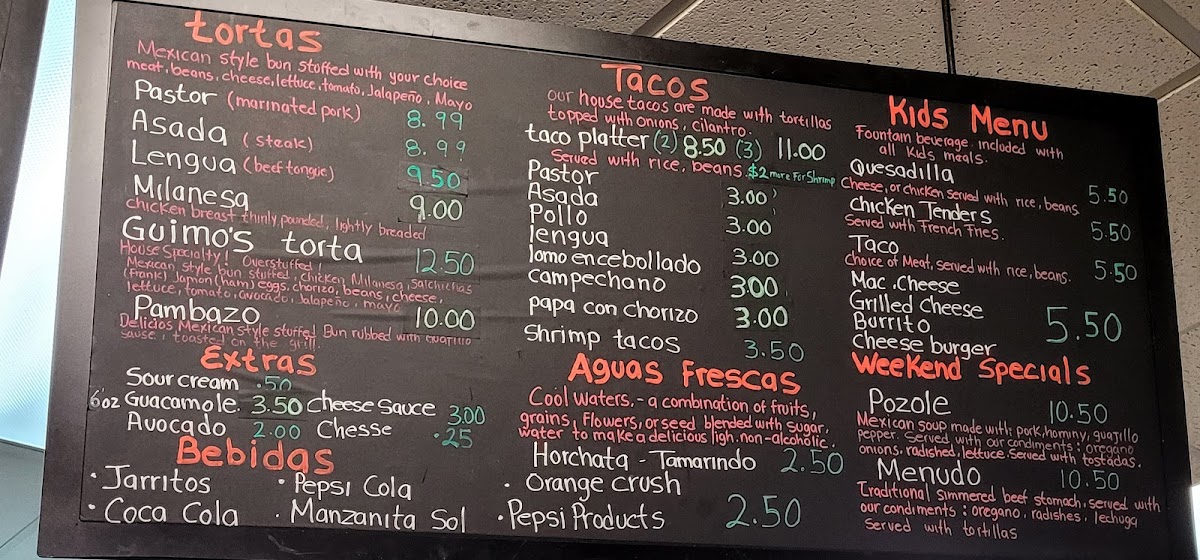 tortas
Mexican style bun stoffed with your choice
meat, beans, cheese, lettuce, tomato, Jalapeño, Mayo
Pastor (marinated pork) 8.99
Asada (steak) 8.99
Lengua (beef tongue) 9.50
Milanesa 9.00
chicken breast thinly pounded, lightly breaded
Guimo's torta 12.50
House Specialty! Overstuffed
Mexican style bun stuffed, chicken, Milanesa, Salchichas
(Frank) Jamon (ham) eggs, chorizo, beans, cheese,
lettuce, tomato, avocado, Jalapeño, mayo
Pambazo 10.00
Delicios Mexican style stuffed Bun rubbed with Guajillo
sause, toasted on the grill.
Extras
Sour cream .50
6oz Guacamole. 3.50 Cheese Sauce 3.00
Avocado 2.00 Chesse .25
Bebidas
· Jarritos · Pepsi Cola
· Coca Cola · Manzanita Sol
Tacos
our house tacos are made with tortillas
topped with onions, cilantro.
taco platter (2) 8.50 (3) 11.00
Served with rice, beans. $2 more For Shrimp
Pastor
Asada 3.00
Pollo 3.00
lengua
lomo encebollado 3.00
campechano 3.00
papa con chorizo 3.00
Shrimp tacos 3.50
Aguas Frescas
Cool Waters.- a combination of fruits,
grains, Flowers, or seed blended with sugar,
water to make a delicious ligh. non-alcoholic.
Horchata - Tamarindo 2.50
· Orange crush
· Pepsi Products 2.50
Kids Menu
Fountain beverage included with
all Kids meals.
Quesadilla 5.50
Cheese, or chicken served with rice, beans.
Chicken Tenders 5.50
Served with French Fries.
Taco 5.50
choice of Meat, served with rice, beans.
Mac .Cheese
Grilled Cheese
Burrito 5.50
Cheese burger
Weekend Specials
Pozole 10.50
Mexican soup made with pork, hominy, guajillo
pepper. Served with our condiments: oregano
onions, radished, lettuce. Served with tostadas.
Menudo 10.50
Traditional simmered beef stomach, served with
our condiments: oregano, radishes, lechuga
Served with tortillas